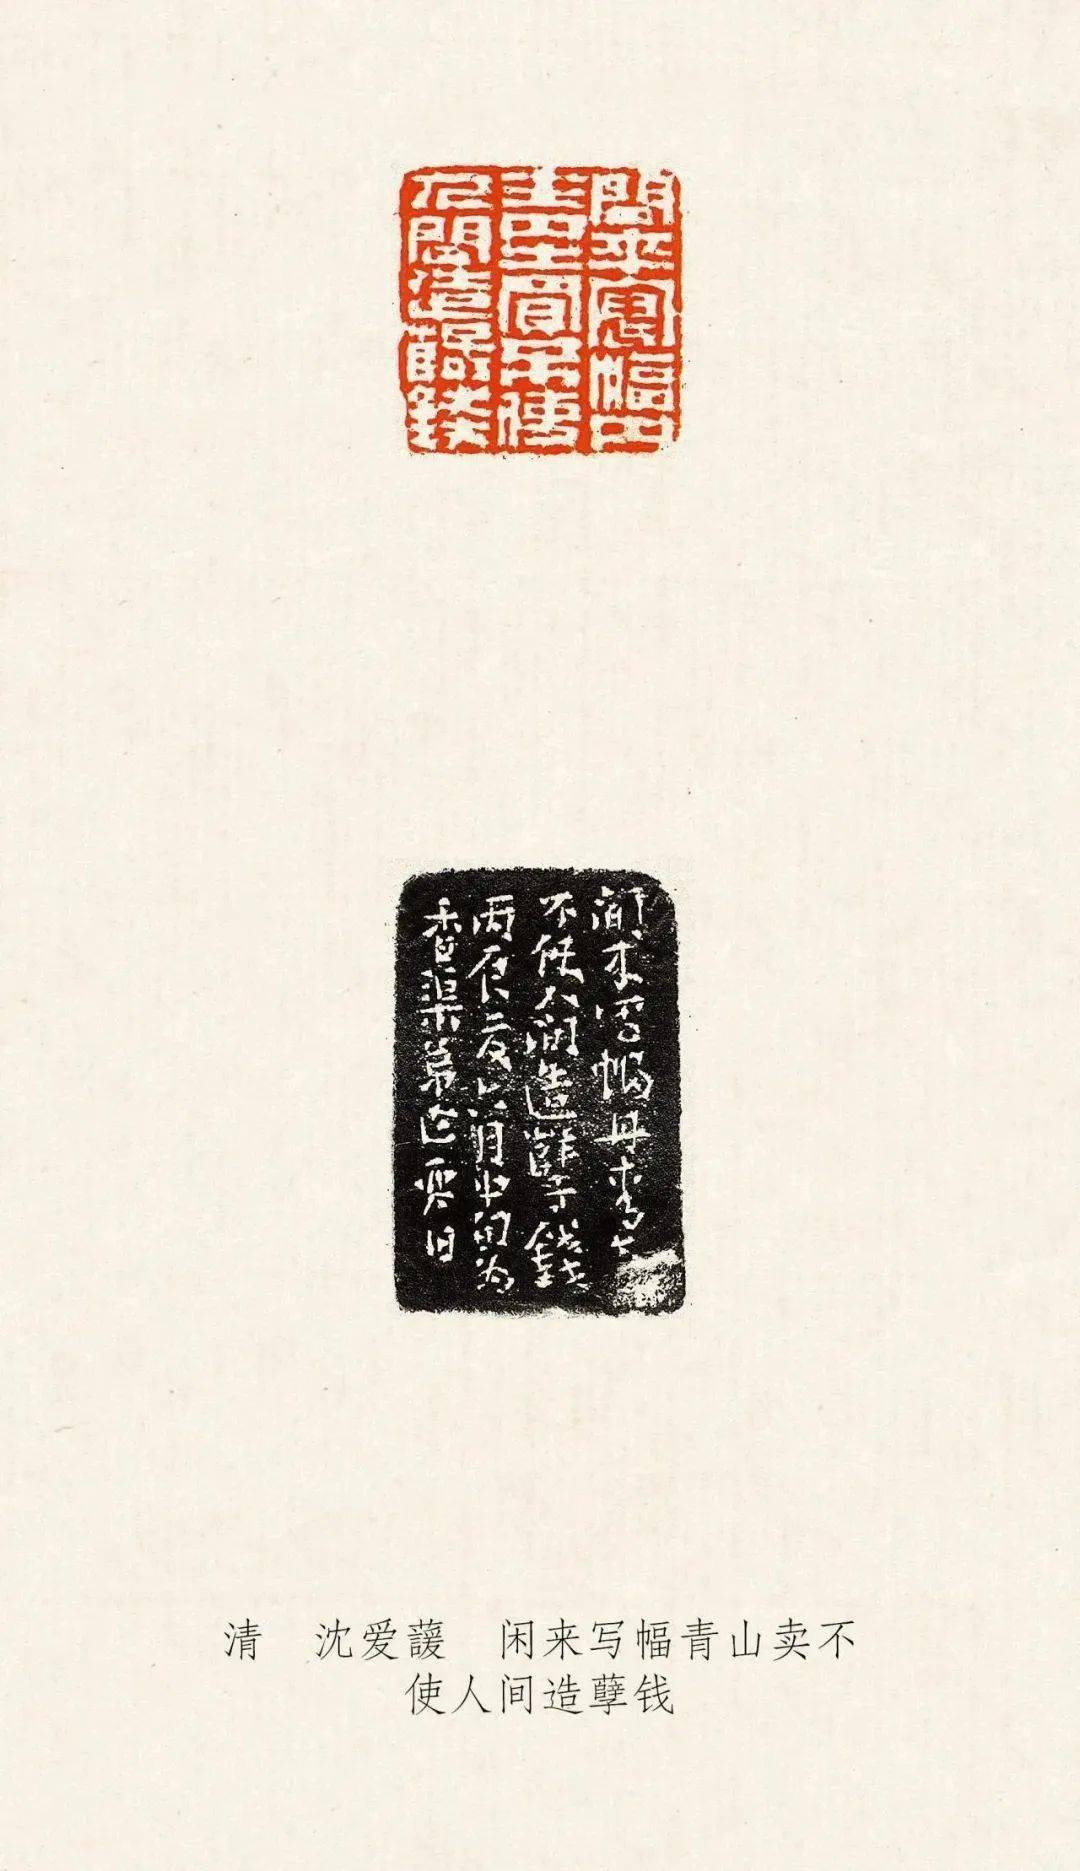 閒來寫幅
青賣不使
人間造孽錢
來寫幅丹青
不使人間造孽錢
丙辰夏六月中旬為
香渠弟
清　沈爱蘐　闲来写幅青山卖不
使人间造孽钱